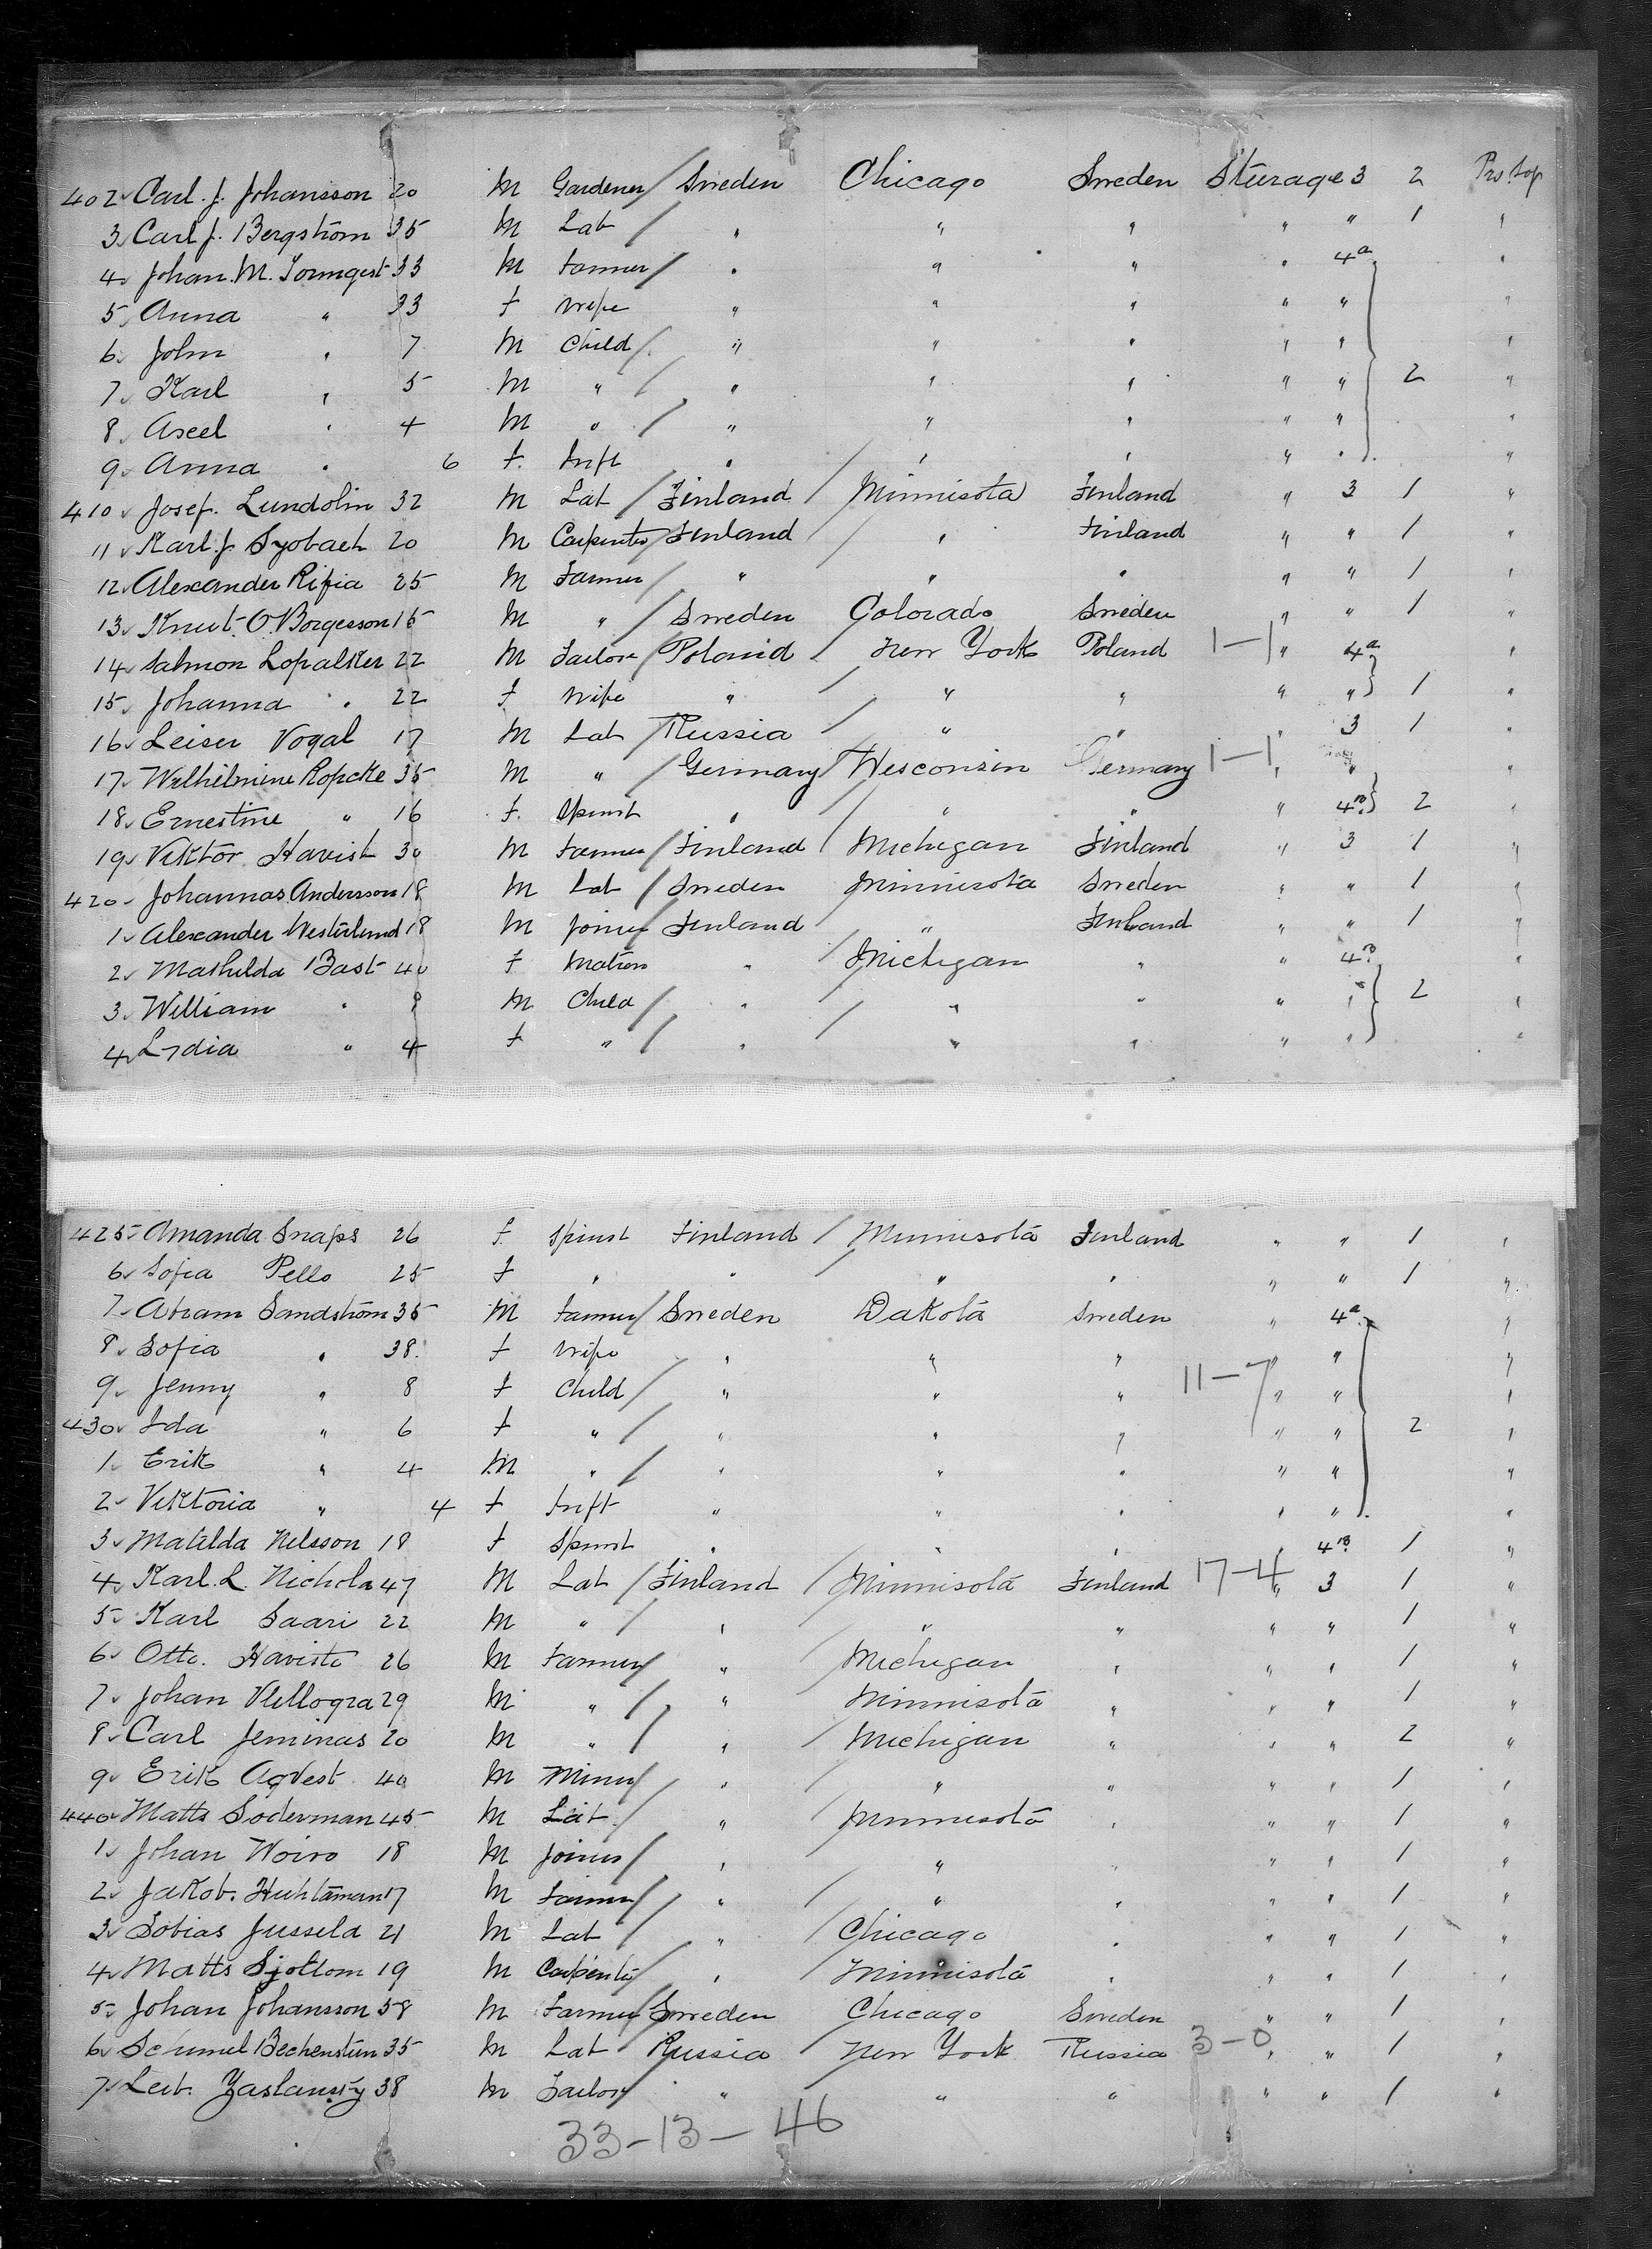 402 Carl. J. Johansson 20 M Gardener / Sweden Chicago Sweden Sturage 3 2 Pro. Sop
3 Carl J. Bergstrom 35 M Lab / " " " " " 1 "
4 Johan. M. 33 M Farmer / " " " " 4a "
5 Anna " 33 f Wife " " " " " "
6 John " 7 M Child / " " " " " "
7 Karl " 5 M " / " " " " " 2 "
8 Axel " 4 M " / " " " " " "
9 Anna " 6 f. Inft " / " " " " "
410 Josef. Lundolin 32 M Lab / Finland / Minnisota Finland " 3 1 "
11 Karl. J. Syoback 20 M Carpenter / Finland / " Finland " " 1 "
12 Alexander Rifia 25 M Farmer / " " " " " 1 "
13 Knut. O. Borgesson 15 M " / Sweden Colorado Sweden " " 1 "
14 Salmon Lopalker 22 M Tailor / Poland / New York Poland 1-1 " 4a "
15 Johanna " 22 f Wife " / " " " " 1 "
16 Leiser Vogal 17 M Lab / Russia / " " " 3 1 "
17 Wilhelmine Ropcke 35 M " / Germany / Wesconsin Germany 1-1 " " "
18 Ernestine " 16 f. Spinst " / " " " 4B 2 "
19 Viktor Havist 30 M Farmer / Finland / Michigan Finland " 3 1 "
420 Johannas Andersson 18 M Lab / Sweden Minnisota Sweden " " 1 "
1 Alexander Westerlund 18 M Joiner / Finland " Finland " " 1 "
2 Mathilda Bast 40 f Matron " / Michigan " " 4B "
3 William " 9 M Child / " / " " " " 2 "
4 Lydia " 4 f " / " / " " " " "
425 Amanda Snaps 26 f. Spinst Finland / Minnisota Finland " " 1 "
6 Sofia Pello 25 f " " / " " " " 1 "
7 Abram Sandstrom 35 M Farmer / Sweden Dakota Sweden " 4a "
8 Sofia " 38. f Wife " " " " " "
9 Jenny " 8 f Child / " " " 11-7 " " "
430 Ida " 6 f " / " " " " " 2 "
1 Erik " 4 M " / " " " " " "
2 Viktoria " 4 f Inft " " " " " "
3 Matilda Nelsson 18 f Spinst " " " " 4B 1 "
4 Karl. L. Nichola 47 M Lab / Finland / Minnisota Finland 17-4 " 3 1 "
5 Karl Saari 22 M " / " / " " " " 1 "
6 Otto. Havisto 26 M Farmer / " / Michigan " " " 1 "
7 Johan 29 M " / " Minnisota " " " 1 "
8 Carl Jeminas 20 M " / " / Michigan " " " 2 "
9 Erik Aqvest 40 M Miner / " / " " " " 1 "
440 Matts Soderman 45 M Lab. / " / Minnisota " " " 1 "
1 Johan Woiro 18 M Joiner / " / " " " " 1 "
2 Jakob. Huhtaman 17 M Farmer / " / " " " " 1 "
3 Tobias Jussela 21 M Lab / " / Chicago " " " 1 "
4 Matts Sjoblom 19 M Carpenter / " / Minnisota " " " 1 "
5 Johan Johansson 58 M Farmer / Sweden Chicago Sweden " " 1 "
6 Schmul Bechenstein 35 M Lab Russia New York Russia 3-0 " " 1 "
7 Leib. Zaslansky 38 M Tailor " " " " " 1 "
33-13-46